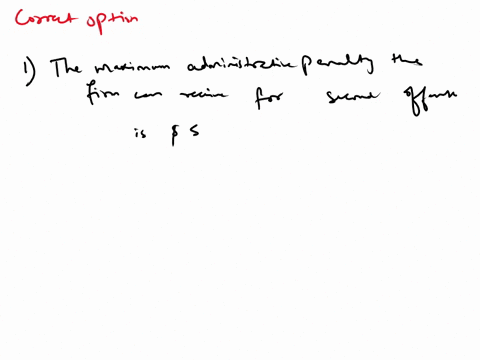 Correct option
1) The maximum administrative penalty the
firm can receive for second offense
is $ 5